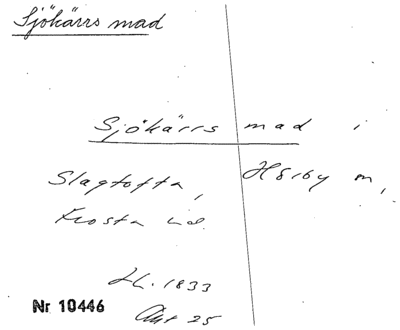 Sjökärrs mad
Sjökärrs mad i
Slagtofta, Hörby sn,
Frosta hd.
Lh. 1833
Akt 25
Nr 10446